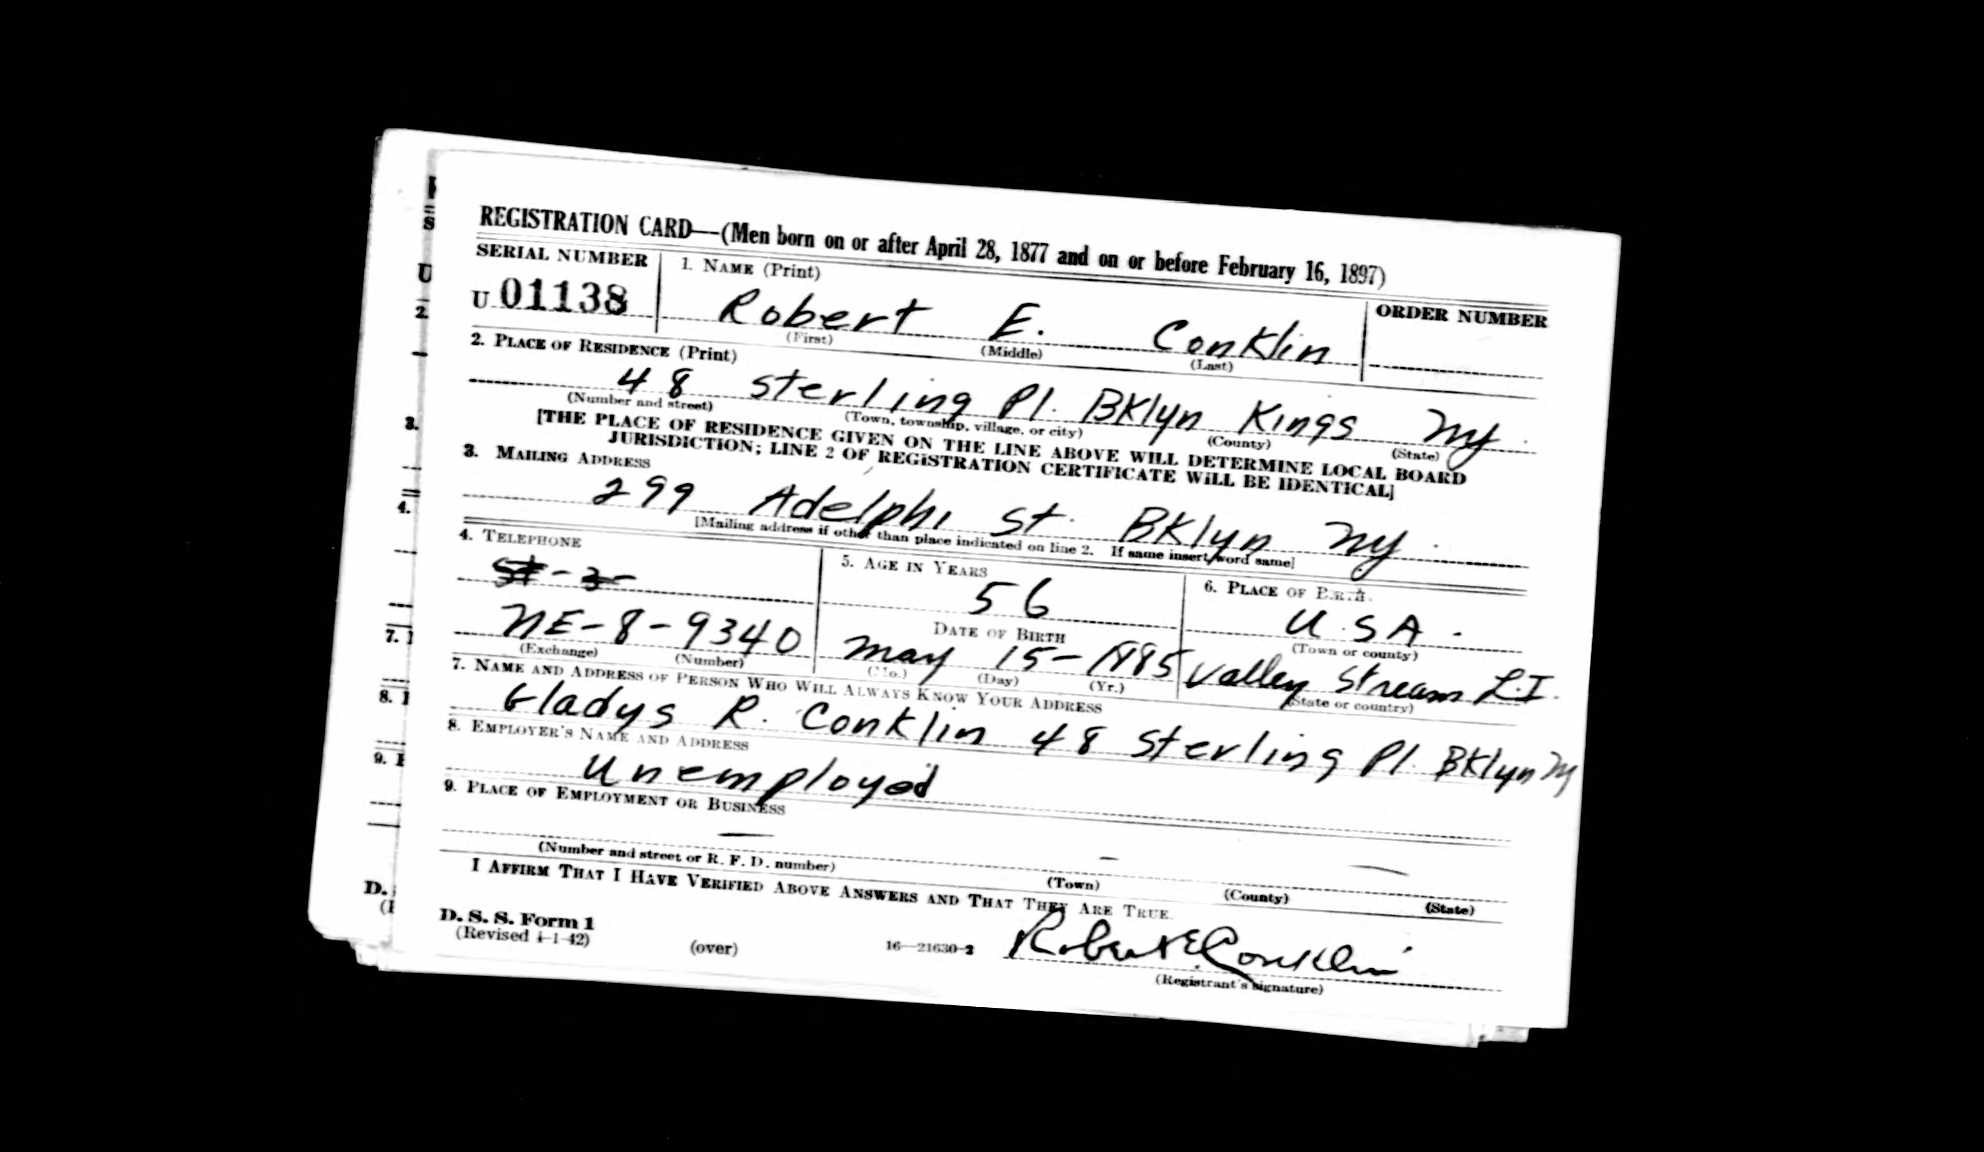 REGISTRATION CARD—(Men born on or after April 28, 1877 and on or before February 16, 1897)
SERIAL NUMBER
1. NAME (Print)
ORDER NUMBER
U 01138
Robert E. Conklin
(First) (Middle) (Last)
2. PLACE OF RESIDENCE (Print)
48 Sterling Pl. BKlyn Kings NY
(Number and street) (Town, township, village, or city) (County) (State)
[THE PLACE OF RESIDENCE GIVEN ON THE LINE ABOVE WILL DETERMINE LOCAL BOARD
JURISDICTION; LINE 2 OF REGISTRATION CERTIFICATE WILL BE IDENTICAL]
3. MAILING ADDRESS
299 Adelphi St. BKlyn NY
[Mailing address if other than place indicated on line 2. If same insert word same]
4. TELEPHONE
5. AGE IN YEARS
6. PLACE OF BIRTH
St-3-
56
U.S.A.
DATE OF BIRTH
(Town or county)
NE-8-9340
May 15-1885
Valley Stream L.I.
(Exchange) (Number)
(Mo.) (Day) (Yr.)
(State or country)
7. NAME AND ADDRESS OF PERSON WHO WILL ALWAYS KNOW YOUR ADDRESS
Gladys R. Conklin 48 Sterling Pl. BKlyn NY
8. EMPLOYER'S NAME AND ADDRESS
Unemployed
9. PLACE OF EMPLOYMENT OR BUSINESS
— — —
(Number and street or R. F. D. number) (Town) (County) (State)
I AFFIRM THAT I HAVE VERIFIED ABOVE ANSWERS AND THAT THEY ARE TRUE.
D. S. S. Form 1
(Revised 4-1-42) (over) 16—21630-2
Robert E. Conklin
(Registrant's signature)